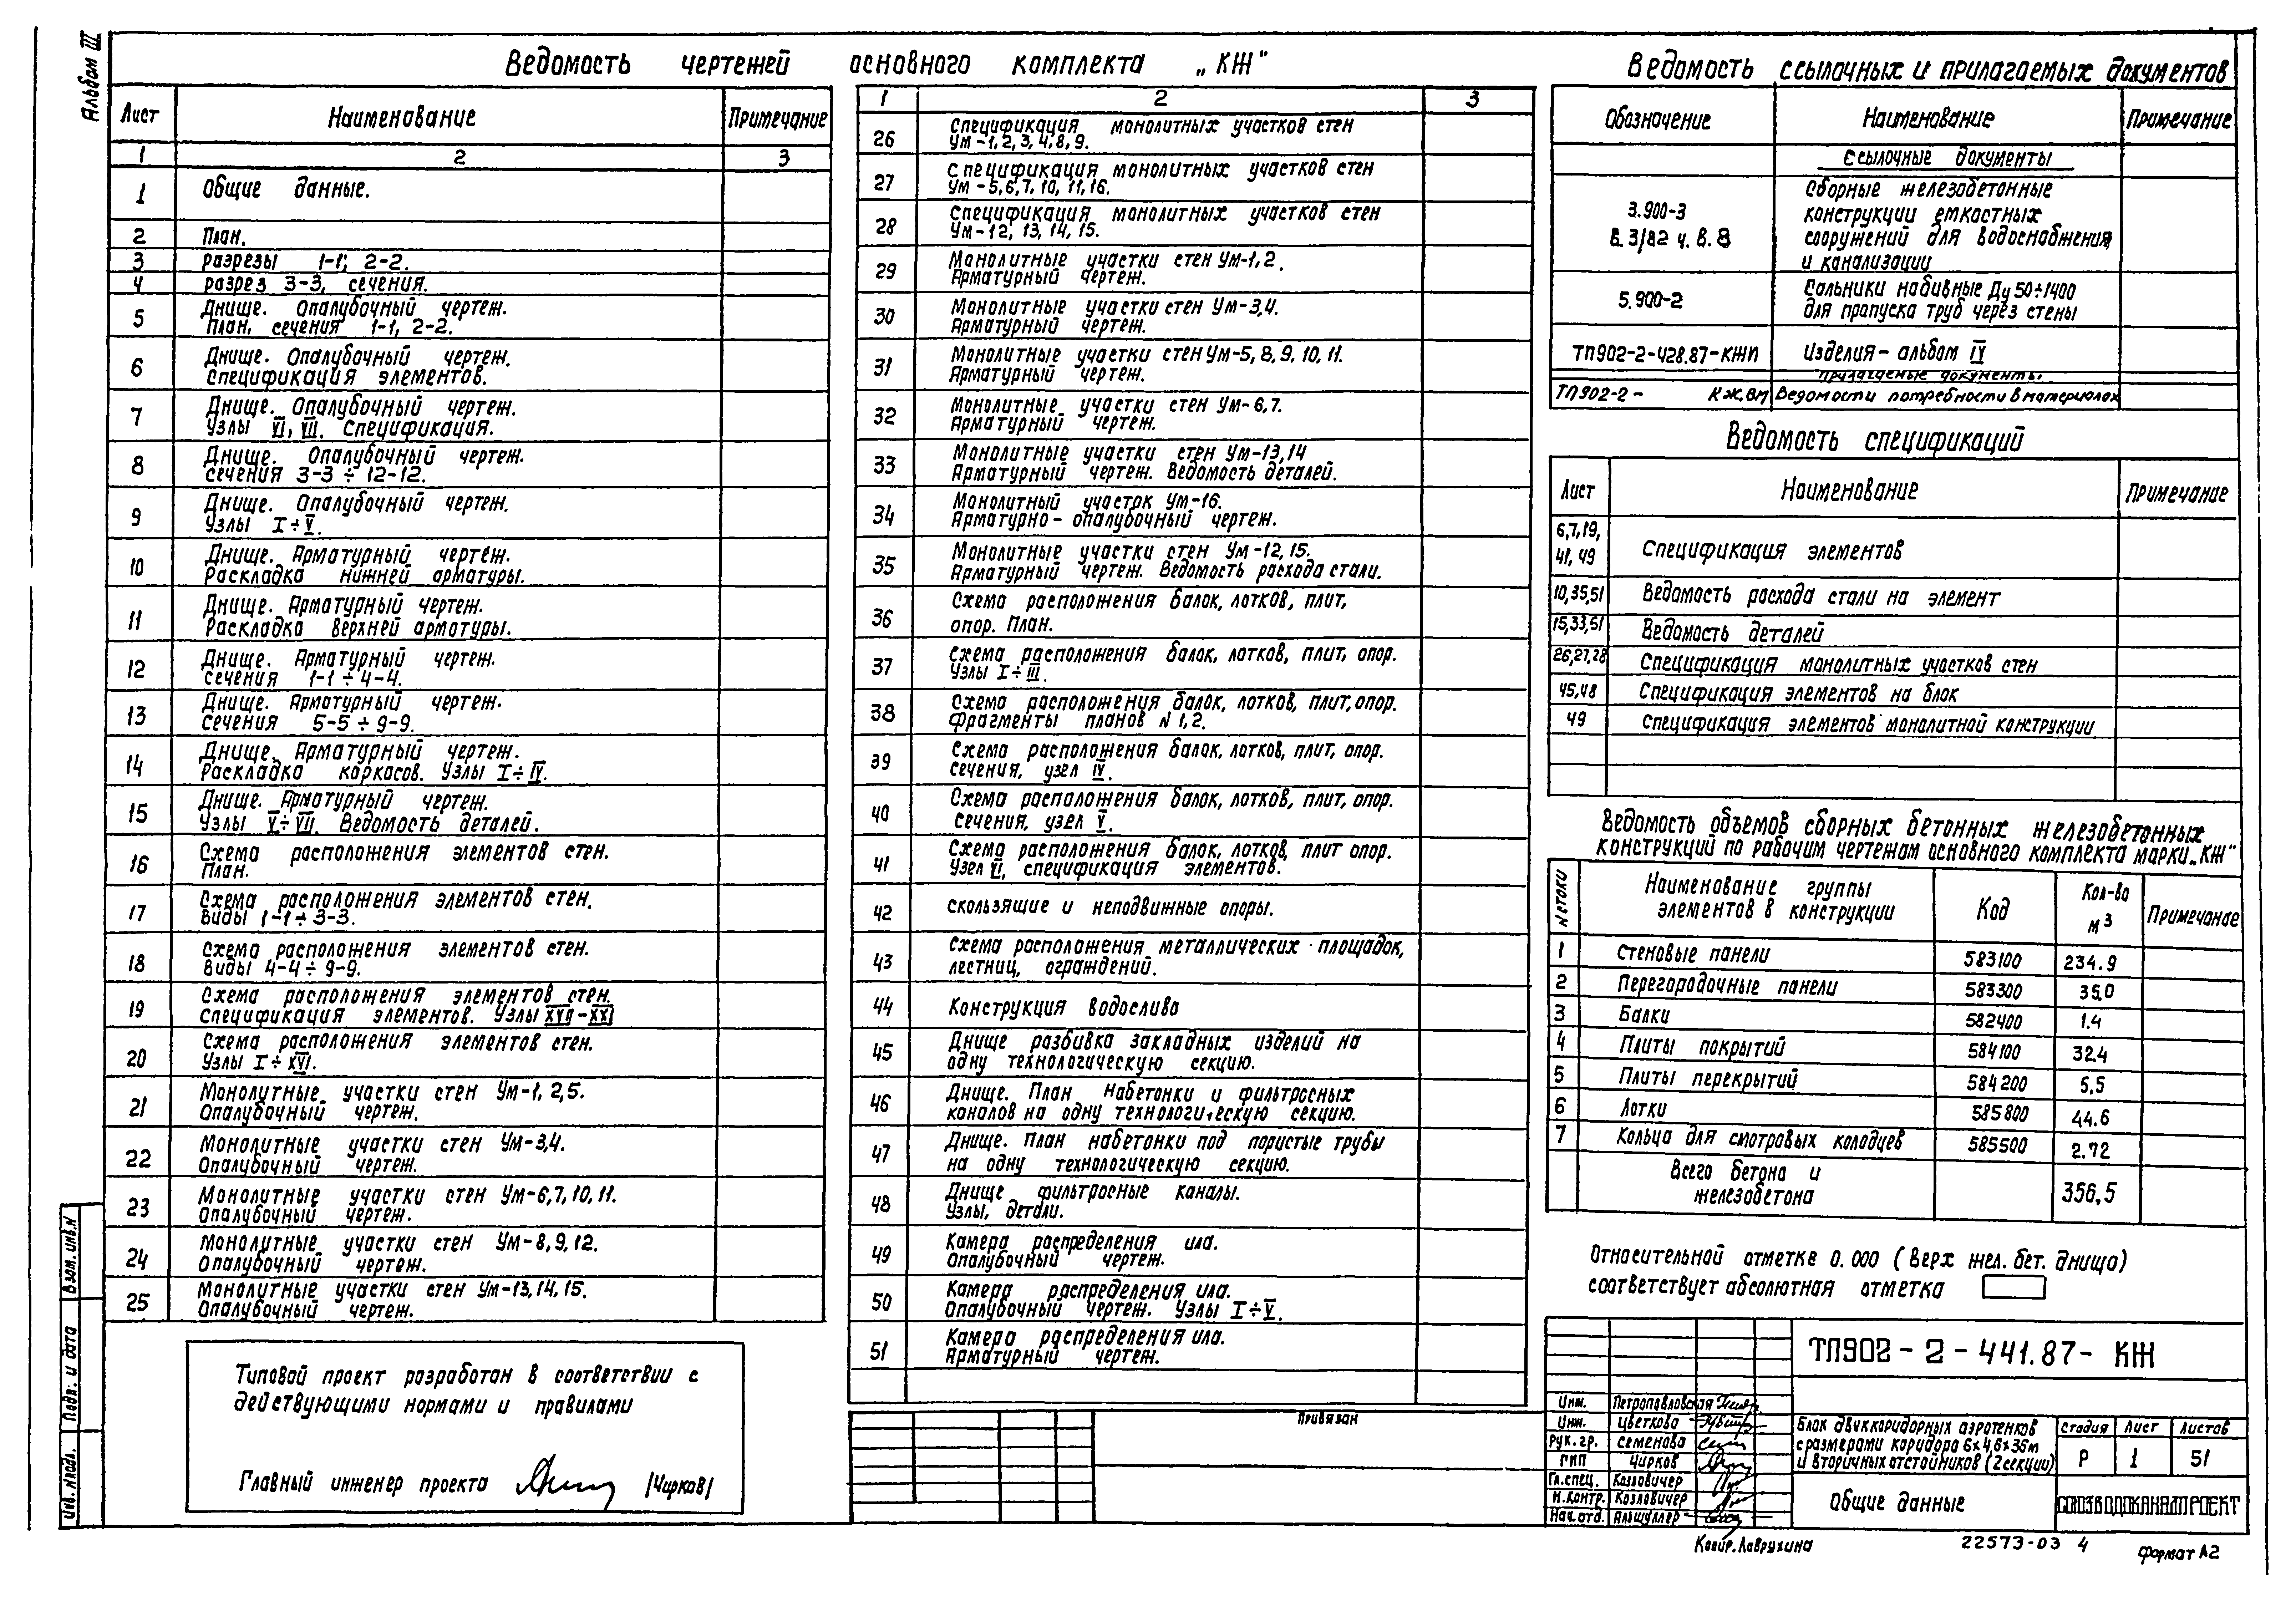 Альбом III
Ведомость чертежей основного комплекта „КЖ"
Лист Наименование Примечание
1 2 3
1 Общие данные.
2 План.
3 разрезы 1-1; 2-2.
4 разрез 3-3, сечения.
5 Днище. Опалубочный чертеж.
План, сечения 1-1, 2-2.
6 Днище. Опалубочный чертеж.
Спецификация элементов.
7 Днище. Опалубочный чертеж.
Узлы VI, VII. Спецификация.
8 Днище. Опалубочный чертеж.
Сечения 3-3 ÷ 12-12.
9 Днище. Опалубочный чертеж.
Узлы I ÷ V.
10 Днище. Арматурный чертеж.
Раскладка нижней арматуры.
11 Днище. Арматурный чертеж.
Раскладка верхней арматуры.
12 Днище. Арматурный чертеж.
Сечения 1-1 ÷ 4-4.
13 Днище. Арматурный чертеж.
Сечения 5-5 ÷ 9-9.
14 Днище. Арматурный чертеж.
Раскладка каркасов. Узлы I ÷ IV.
15 Днище. Арматурный чертеж.
Узлы V ÷ VII. Ведомость деталей.
16 Схема расположения элементов стен.
План.
17 Схема расположения элементов стен.
Виды 1-1 ÷ 3-3.
18 Схема расположения элементов стен.
Виды 4-4 ÷ 9-9.
19 Схема расположения элементов стен.
Спецификация элементов. Узлы XVII-XXI
20 Схема расположения элементов стен.
Узлы I ÷ XVI.
21 Монолитные участки стен Ум-1, 2, 5.
Опалубочный чертеж.
22 Монолитные участки стен Ум-3,4.
Опалубочный чертеж.
23 Монолитные участки стен Ум-6,7,10,11.
Опалубочный чертеж.
24 Монолитные участки стен Ум-8,9,12.
Опалубочный чертеж.
25 Монолитные участки стен Ум-13,14,15.
Опалубочный чертеж.
Типовой проект разработан в соответствии с
действующими нормами и правилами
Главный инженер проекта /Чирков/
1 2 3
26 Спецификация монолитных участков стен
Ум-1,2,3,4,8,9.
27 Спецификация монолитных участков стен
Ум-5,6,7,10,11,16.
28 Спецификация монолитных участков стен
Ум-12, 13, 14, 15.
29 Монолитные участки стен Ум-1,2.
Арматурный чертеж.
30 Монолитные участки стен Ум-3,4.
Арматурный чертеж.
31 Монолитные участки стен Ум-5, 8, 9, 10, 11.
Арматурный чертеж.
32 Монолитные участки стен Ум-6,7.
Арматурный чертеж.
33 Монолитные участки стен Ум-13,14
Арматурный чертеж. Ведомость деталей.
34 Монолитный участок Ум-16.
Арматурно-опалубочный чертеж.
35 Монолитные участки стен Ум-12,15.
Арматурный чертеж. Ведомость расхода стали.
36 Схема расположения балок, лотков, плит,
опор. План.
37 Схема расположения балок, лотков, плит, опор.
Узлы I ÷ III.
38 Схема расположения балок, лотков, плит, опор.
Фрагменты планов N 1, 2.
39 Схема расположения балок, лотков, плит, опор.
Сечения, узел IV.
40 Схема расположения балок, лотков, плит, опор.
Сечения, узел V.
41 Схема расположения балок, лотков, плит опор.
Узел VI, спецификация элементов.
42 Скользящие и неподвижные опоры.
43 Схема расположения металлических площадок,
лестниц, ограждений.
44 Конструкция водослива
45 Днище разбивка закладных изделий на
одну технологическую секцию.
46 Днище. План набетонки и фильтросных
каналов на одну технологическую секцию.
47 Днище. План набетонки под пористые трубы
на одну технологическую секцию.
48 Днище фильтросные каналы.
Узлы, детали.
49 Камера распределения ила.
Опалубочный чертеж.
50 Камера распределения ила.
Опалубочный чертеж. Узлы I ÷ V.
51 Камера распределения ила.
Арматурный чертеж.
Привязан
Ведомость ссылочных и прилагаемых документов
Обозначение Наименование Примечание
Ссылочные документы
3.900-3
в. 3/82 ч. в. 8
Сборные железобетонные
конструкции емкостных
сооружений для водоснабжения
и канализации
5.900-2 Сальники набивные Ду 50÷1400
для пропуска труб через стены
ТП902-2-428.87-КЖИ Изделия - альбом IV
Прилагаемые документы.
ТП902-2- КЖ.ВМ Ведомости потребности в материалах
Ведомость спецификаций
Лист Наименование Примечание
6,7,19,
41, 49 Спецификация элементов
10,35,51 Ведомость расхода стали на элемент
15,33,51 Ведомость деталей
26,27,28 Спецификация монолитных участков стен
45,48 Спецификация элементов на блок
49 Спецификация элементов монолитной конструкции
Ведомость объемов сборных бетонных железобетонных
конструкций по рабочим чертежам основного комплекта марки „КЖ"
N строки Наименование группы
элементов в конструкции Код Кол-во
м3 Примечание
1 Стеновые панели 583100 234.9
2 Перегородочные панели 583300 35.0
3 Балки 582400 1.4
4 Плиты покрытий 584100 32.4
5 Плиты перекрытий 584200 5.5
6 Лотки 585800 44.6
7 Кольца для смотровых колодцев 585500 2.72
Всего бетона и
железобетона 356,5
Относительной отметке 0.000 (Верх жел. бет. днища)
соответствует абсолютная отметка
ТП902-2-441.87-КЖ
Инж. Петропавловская
Инж. Цветкова
Рук.гр. Семенова
ГИП Чирков
Гл.спец. Козловичер
Н.контр. Козловичер
Нач.отд. Альшуллер
Блок двухкоридорных аэротенков
с размерами коридора 6х4,6х36м
и вторичных отстойников (2 секции)
Стадия Лист Листов
Р 1 51
Общие данные
СОЮЗВОДОКАНАЛПРОЕКТ
Копир. Лаврухина
22573-03 4
Формат А2
Взам. инв. N
Подп. и дата
Инв. N подл.